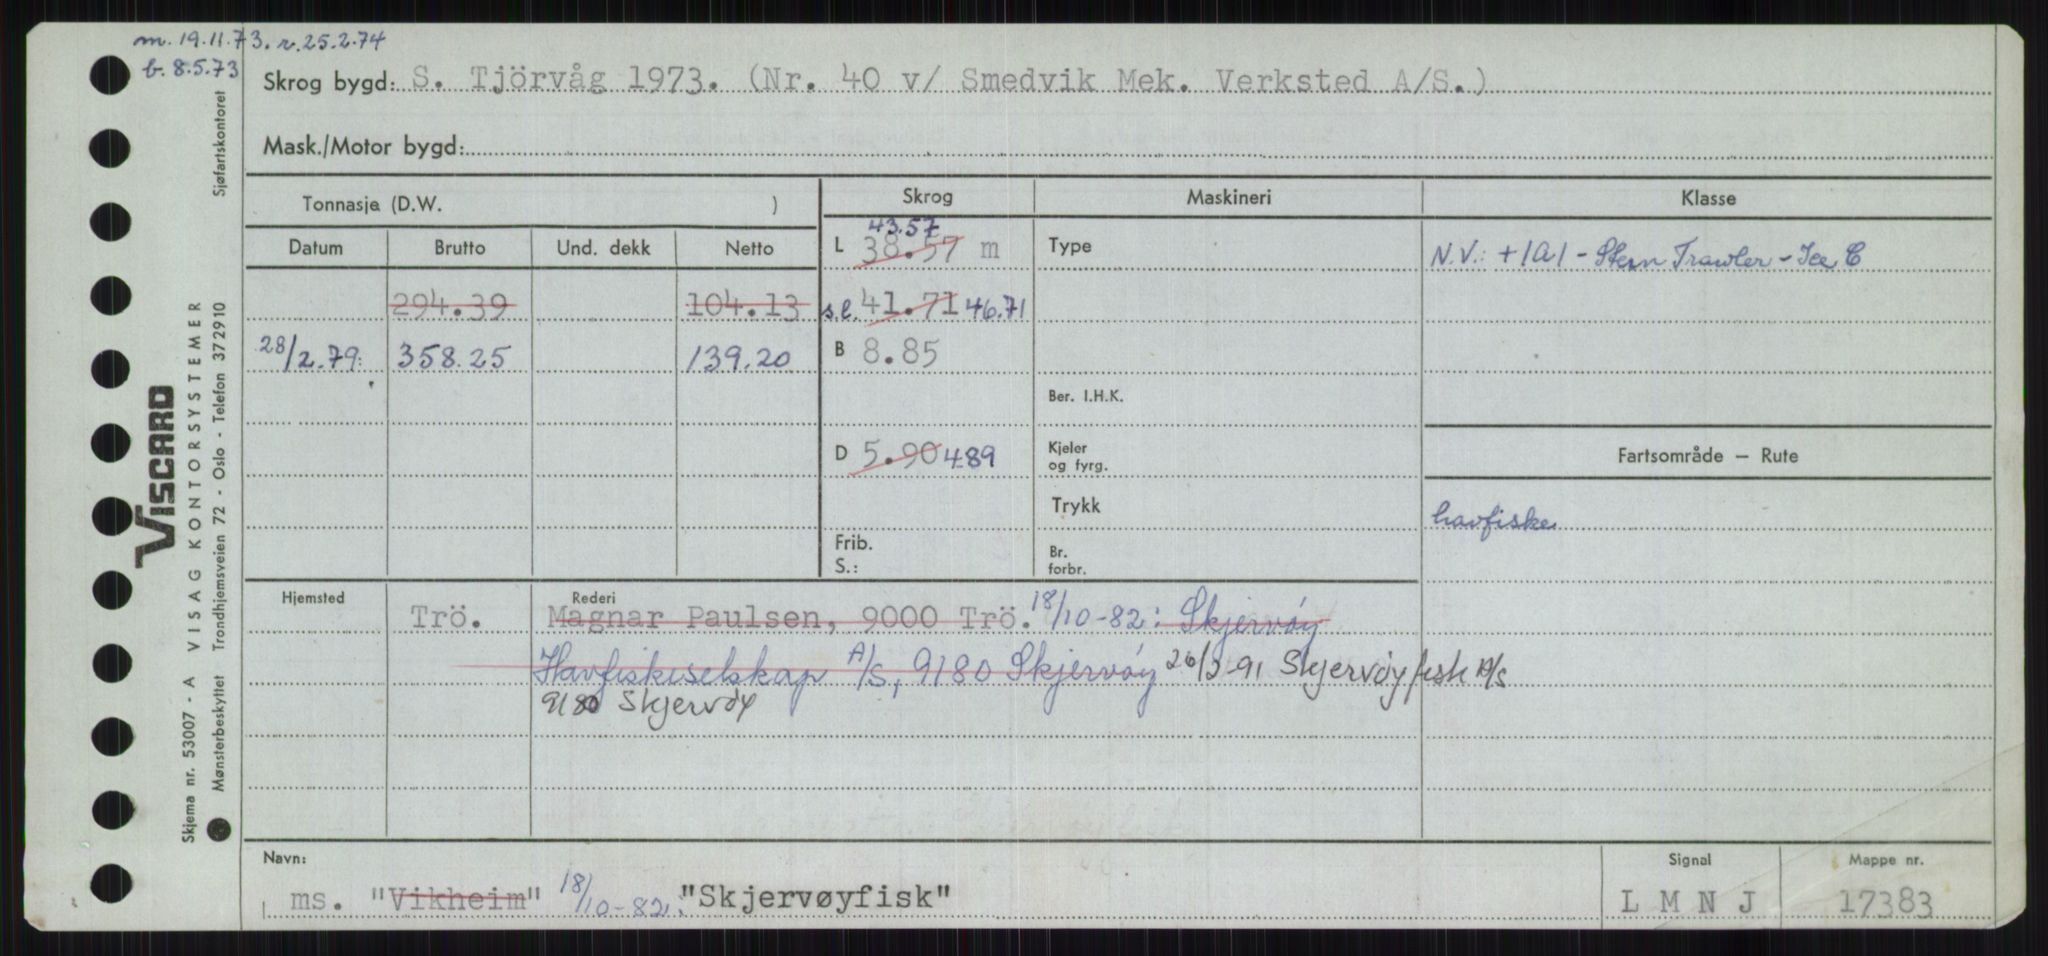 m. 19.11.73. r. 25.2.74
b. 8.5.73
Skrog bygd: S. Tjörvåg 1973. (Nr. 40 v/ Smedvik Mek. Verksted A/S.)
Mask./Motor bygd:
Tonnasje (D.W. )
Skrog
Maskineri
Klasse
Datum
Brutto
Und. dekk
Netto
L 38.57 m 43.57
Type
N.V.: +1A1 - Stern Trawler - Ice C
294.39
104.13
s.l. 41.71 46.71
28/2.79:
358.25
139.20
B 8.85
Ber. I.H.K.
D 5.90 4.89
Kjeler
og fyrg.
Fartsområde – Rute
Trykk
havfiske
Frib.
S.:
Br.
forbr.
Hjemsted
Rederi
Trö. Magnar Paulsen, 9000 Trö. 18/10-82: Skjervöy
Havfiskeselskap A/S, 9180 Skjervöy 26/2-91 Skjervøyfisk A/S
9180 Skjervøy
Navn:
ms. "Vikheim" 18/10-82: "Skjervøyfisk"
Signal
L M N J
Mappe nr.
17383
Sjøfartskontoret
VISCARD
Skjema nr. 53007 - A VISAG KONTORSYSTEMER
Mønsterbeskyttet Trondhjemsveien 72 - Oslo - Telefon 372910